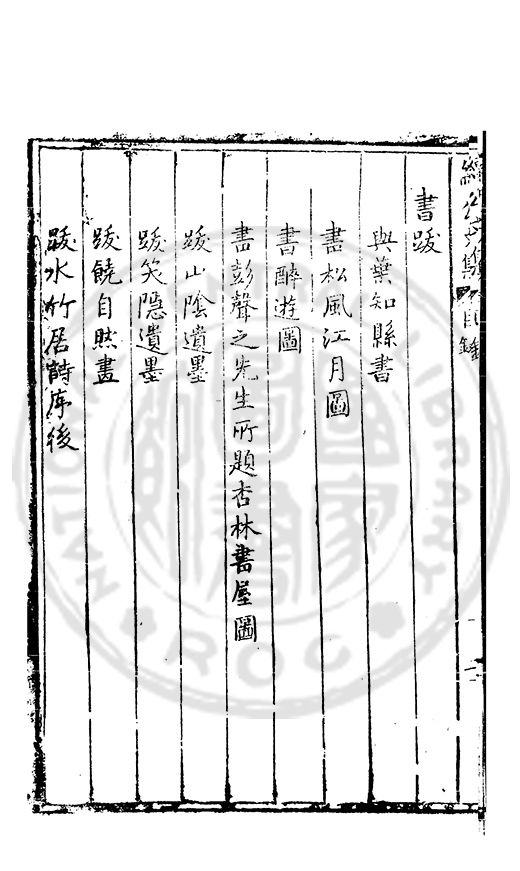 書跋
與葉知縣書
書松風江月圖
書醉遊圖
書彭聲之先生所題杏林書屋圖
跋山陰遺墨
跋笑隱遺墨
跋饒自然畫
跋水竹居詩序後
目錄